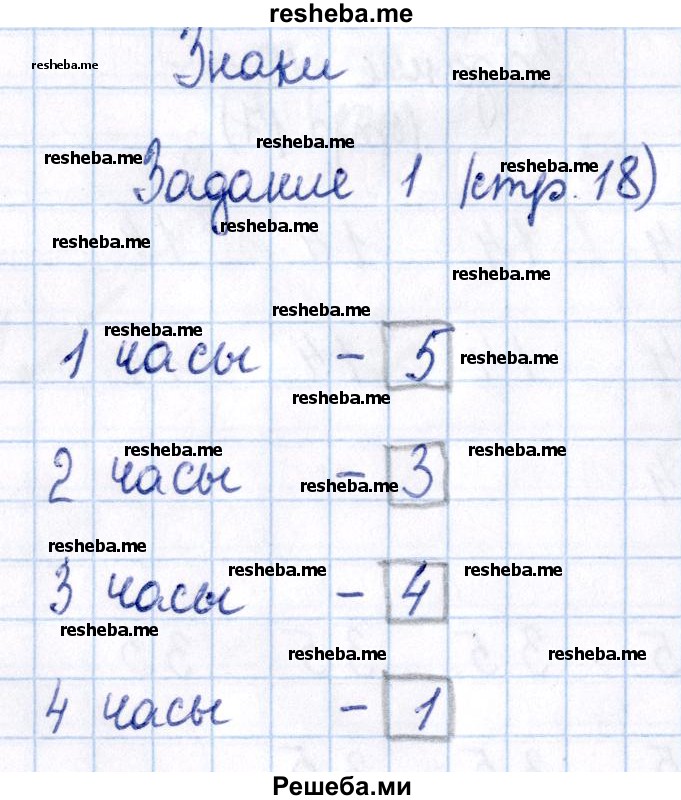 resheba.me
Знаки
resheba.me resheba.me
resheba.me
resheba.me resheba.me
Задание 1 (стр. 18)
resheba.me
resheba.me
resheba.me
resheba.me
resheba.me
1 часы - 5 resheba.me
resheba.me
resheba.me resheba.me
2 часы - 3
resheba.me
resheba.me
resheba.me resheba.me
3 часы - 4
resheba.me
resheba.me resheba.me
4 часы - 1
Решеба.ми